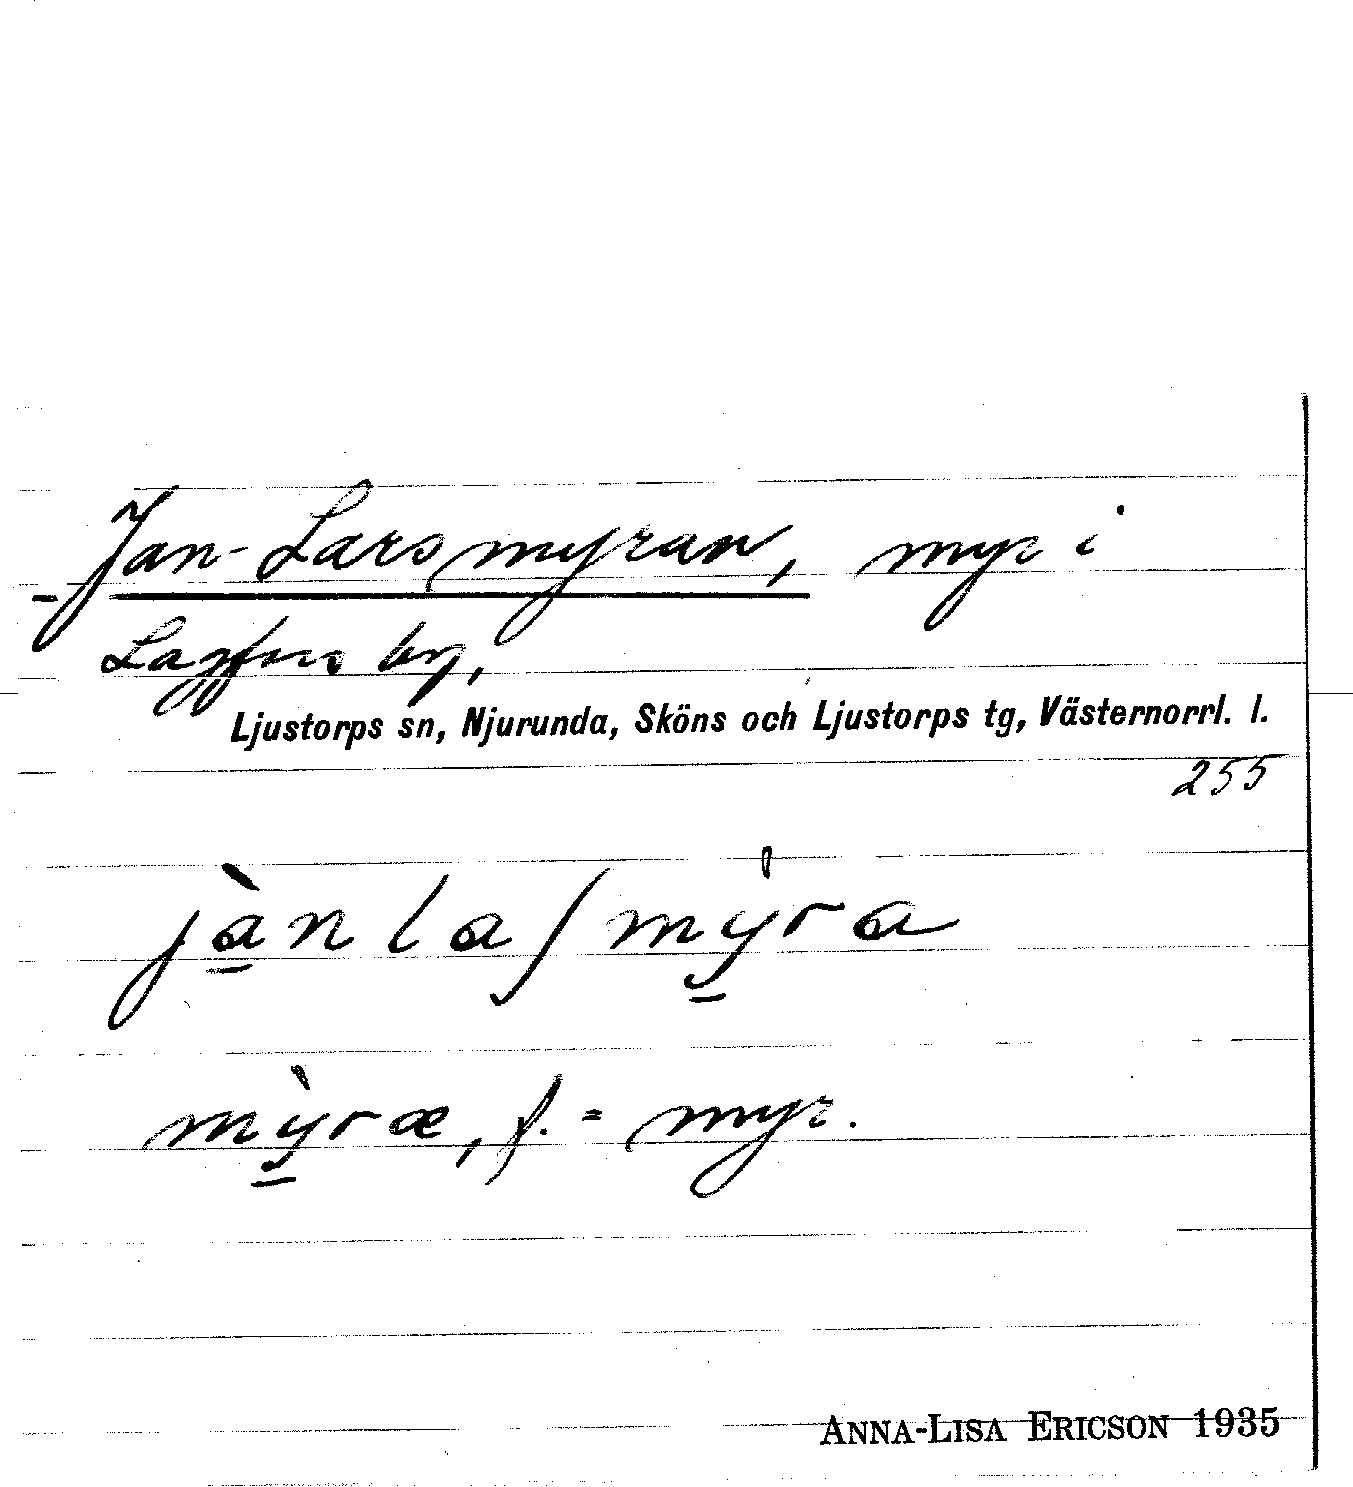 Jan-Larsmyran, myr i
Lagfors by,
Ljustorps sn, Njurunda, Sköns och Ljustorps tg, Västernorrl. l.
255
jànlaʃmy̍ra
mỳræ, f. = myr.
ANNA-LISA ERICSON 1935